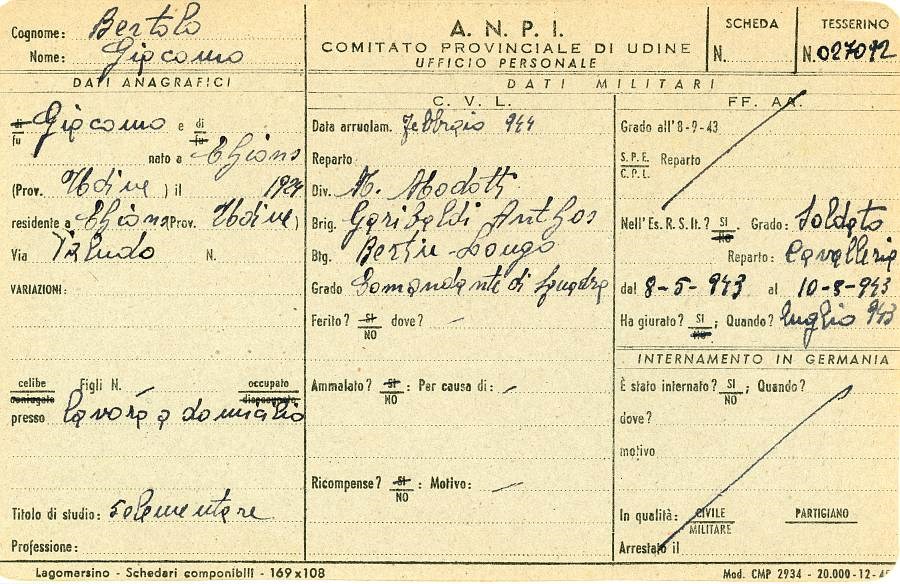 Cognome: Bertolo
Nome: Giacomo
DATI ANAGRAFICI
di fu Giacomo e di fu
nato a Chions
(Prov. Udine) il 1924
residente a Chions (Prov. Udine)
Via Taiedo N.
VARIAZIONI:
celibe coniugato Figli N. occupato disoccupato
presso lavora a domicilio
Titolo di studio: 5 elementare
Professione:
A. N. P. I.
COMITATO PROVINCIALE DI UDINE
UFFICIO PERSONALE
SCHEDA
N.
TESSERINO
N. 027012
DATI MILITARI
C. V. L.
Data arruolam. Febbraio 944
Reparto
Div. M. Modotti
Brig. Garibaldi Anthos
Btg. Bertin-Longo
Grado Comandante di squadra
Ferito? SI NO dove? –
Ammalato? SI NO : Per causa di: –
Ricompense? SI NO : Motivo: –
FF. AA.
Grado all'8-9-43
S.P.E. C.P.L. Reparto
Nell'Es. R. S. It.? SI No Grado: Soldato
Reparto: Cavalleria
dal 8-5-943 al 10-8-943
Ha giurato? SI No ; Quando? luglio 943
INTERNAMENTO IN GERMANIA
È stato internato? SI NO ; Quando?
dove?
motivo
In qualità: CIVILE MILITARE PARTIGIANO
Arrestato il
Lagomarsino - Schedari componibili - 169 x 108
Mod. CMP 2934 - 20.000-12-45